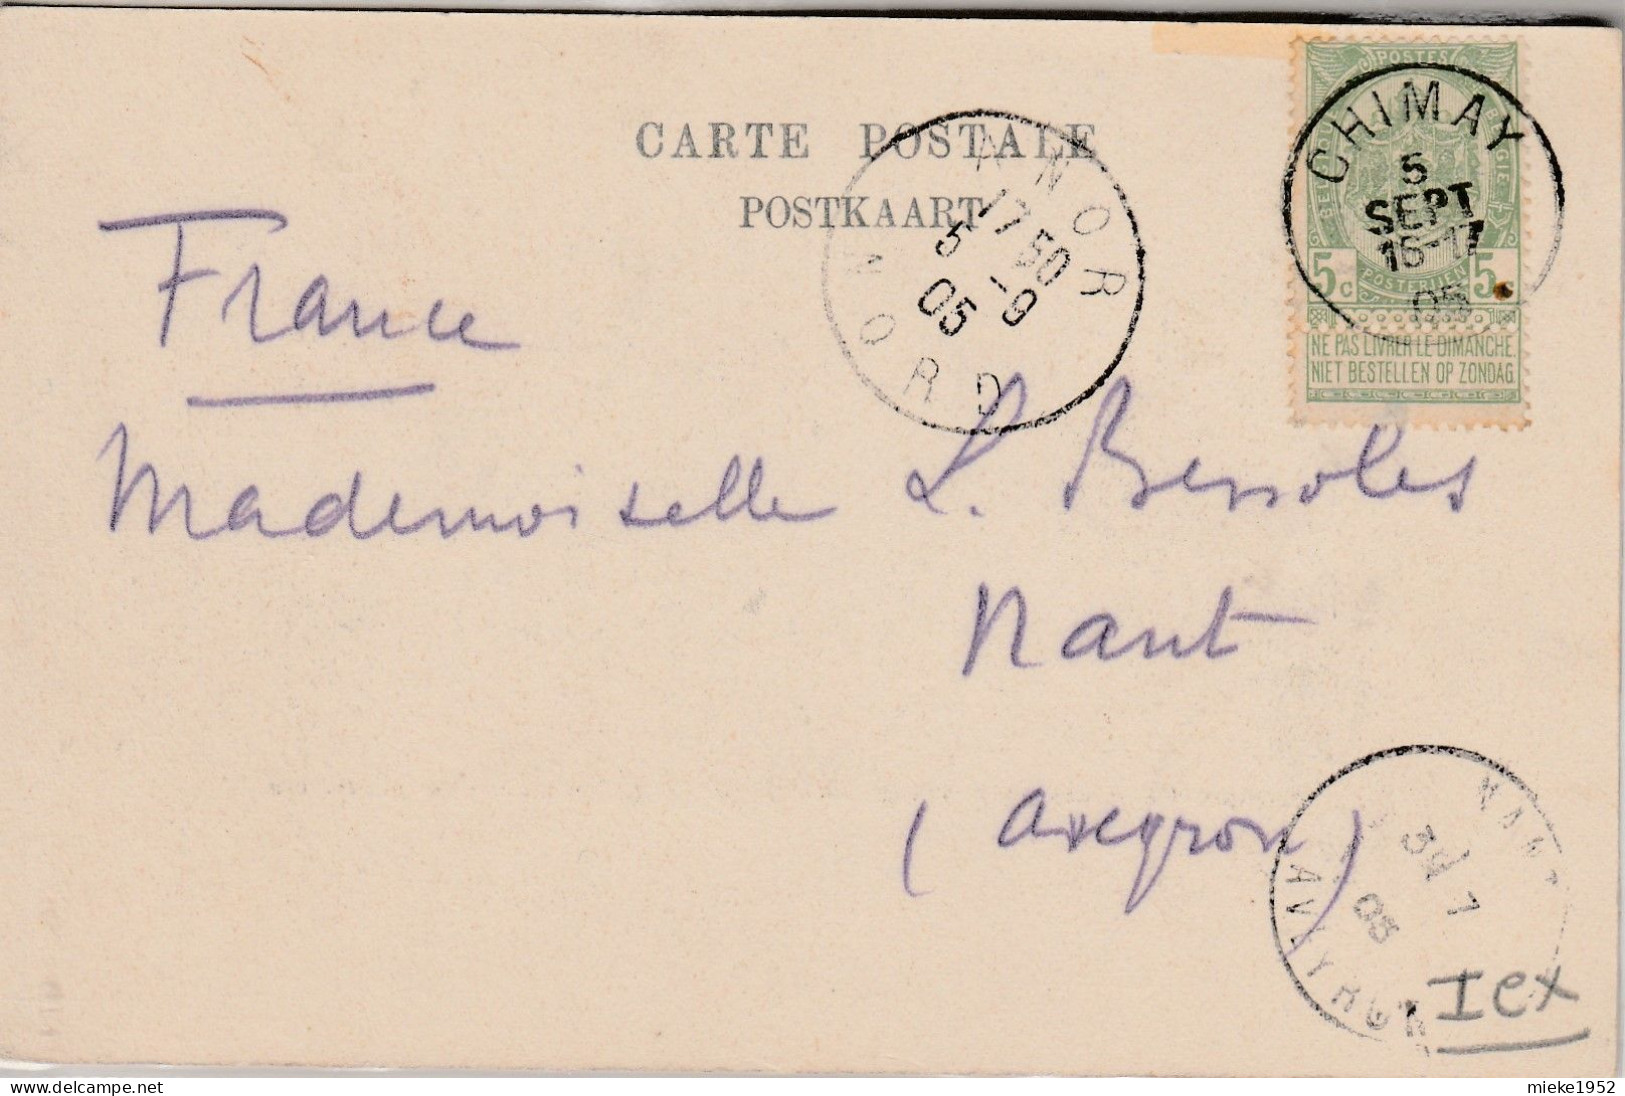 CARTE POSTALE
POSTKAART
POSTES
5c POSTERIJEN 5c
NE PAS LIVRER LE DIMANCHE.
NIET BESTELLEN OP ZONDAG
CHIMAY
5
SEPT
16-17
05
ANOR
17 50
5 -9
05
NORD
France
Mademoiselle L. Bessoles
Nant
(Aveyron)
NANT
7
05
AVEYRON
Iex
delcampe.net
mieke1952